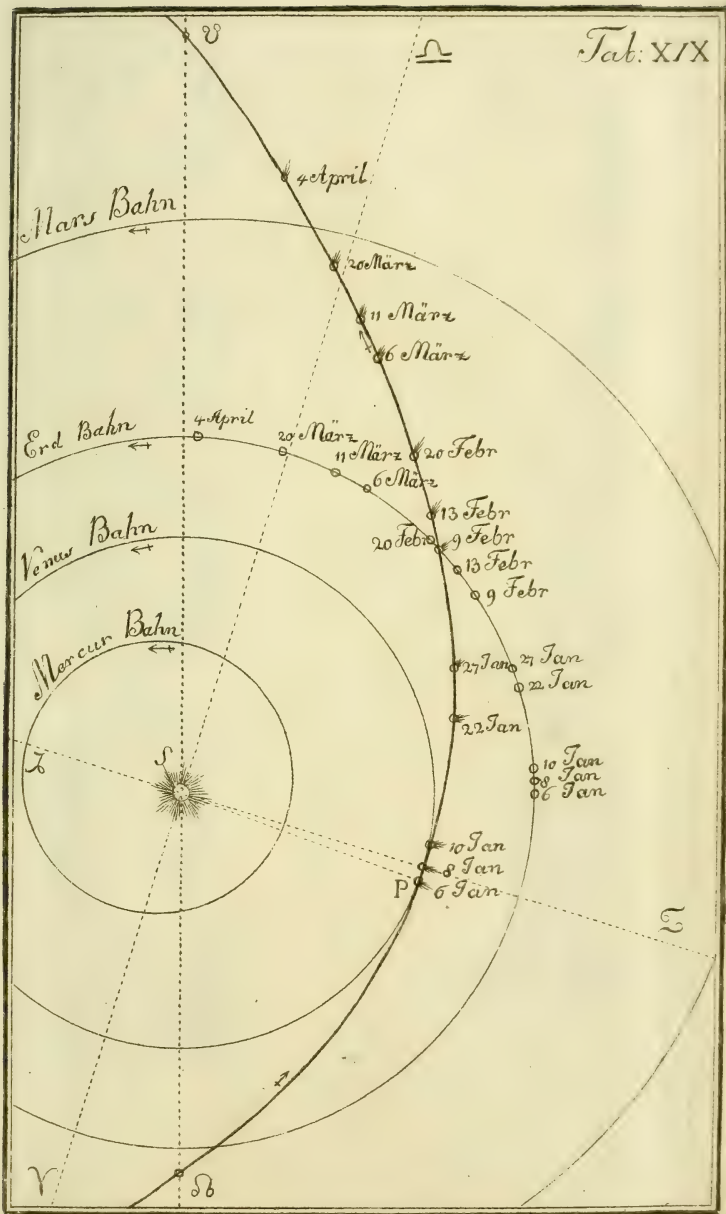 ☋
♎
Tab: XIX
4 April
Mars Bahn
20 März
11 März
6 März
4 April
Erd Bahn
20 März
11 März
6 März
20 Febr
13 Febr
20 Febr
9 Febr
13 Febr
9 Febr
Venus Bahn
Mercur Bahn
27 Jan
27 Jan
22 Jan
22 Jan
♑
S
10 Jan
8 Jan
6 Jan
10 Jan
8 Jan
P
6 Jan
♈
☊